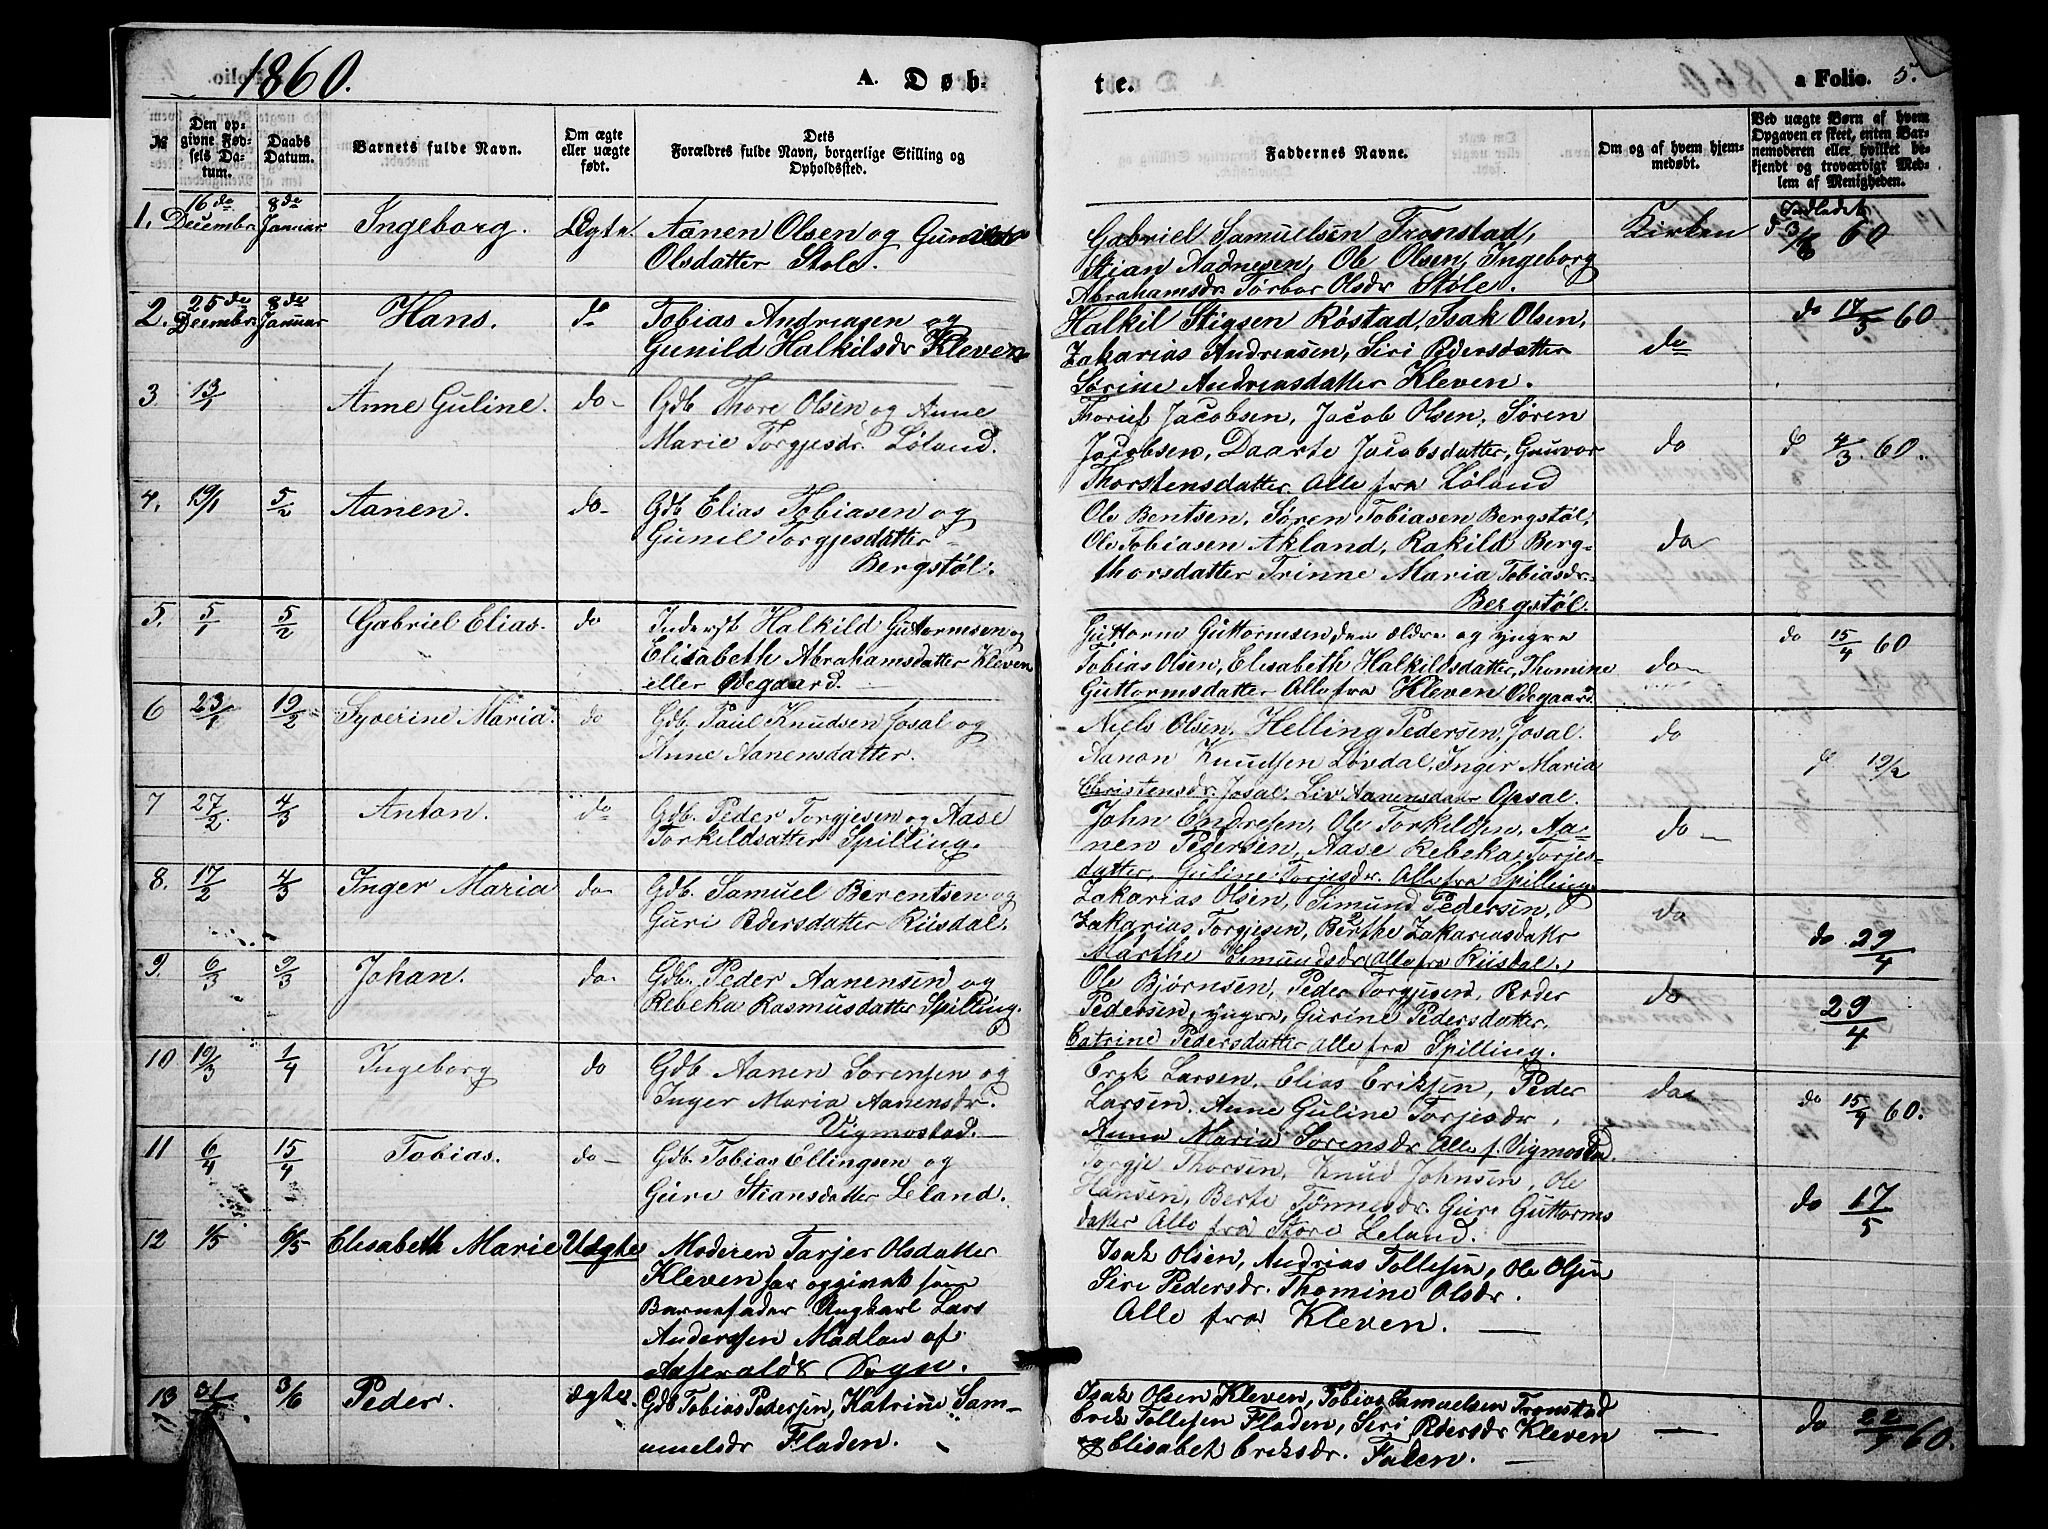 1860.
A. Døb-
te.
a Folio. 5.
№
Den op-
givne Fød-
sels Da-
tum.
Daabs
Datum.
Barnets fulde Navn.
Om ægte
eller uægte
født.
Dets
Forældres fulde Navn, borgerlige Stilling og
Opholdssted.
Faddernes Navne.
Om og af hvem hjem-
medøbt.
Ved uægte Børn af hvem
Opgaven er skeet, enten Bar-
nemoderen eller hvilket be-
kjendt og troværdigt Med-
lem af Menigheden.
1. 16de Decembr 8de Januar Ingeborg. Ægte. Aanen Olsen og
Olsdatter Støle.
Gabriel Samuelsen Tronstad,
Stian Aadnesen, Ole Olsen, Ingeborg
Abrahamsdr Tørbor Olsdr Støle.
Kirken
Indladet
60
2. 25de Decembr 8de Januar Hans. do Tobias Andreasen og
Gunild Halkilsdr Kleven
Halkil Stigsen Røstad, Isak Olsen,
Zakarias Andreasen, Siri Pedersdatter
Sørine Andreasdatter Kleven.
do
do 17/5 60
3. 13/1 Anne Guline. do- Gdb. Thore Olsen og Anne
Marie Torgjesdr. Løland.
Jacobsen, Jacob Olsen, Søren
Jacobsen, Daarte Jacobsdatter, Gunvor
Thorstensdatter Alle fra Løland
do
4/3 60.
4. 19/1 5/2 Aanen. do- Gdb Elias Tobiasen og
Gunil Torgjesdatter
Bergstøl.
Ole Bentsen, Søren Tobiasen Bergstøl,
Ole Tobiasen Akland, Rakild Berg-
thorsdatter Trinne Maria Tobiasdr.
Bergstøl.
do
5. 5/1 5/2 Gabriel Elias. do Inderst Halkild Guttormsen og
Elisabeth Abrahamsdatter Kleven
eller Ødegaard.
Guttorm Guttormsen den ældre og yngre
Tobias Olsen, Elisabeth Halkildsdatter, Thomine
Guttormsdatter Alle fra Kleven Ødegaard
do-
do 15/4 60
6 23/1 19/2 Syverine Maria. do Gdb. Paul Knudsen Josal og
Anne Aanensdatter.
Niels Olsen, Helling Pedersen, Josal.
Aanon Knudsen Løvdal, Inger Maria
Christensdr. Josal, Liv Aanensdatter Opsal.
do
19/2
7 27/2 4/3 Anton. do Gdb. Peder Torgjesen og Aase
Torkildsatter Spilling.
John Endresen, Ole Torkildsen, Aa-
nen Pedersen, Aase Rebeka Torjes-
datter, Guline Torjesdr. Alle fra Spilling
do-
8. 17/2 4/3 Inger Maria do- Gdb. Samuel Berentsen og
Guri Pedersdatter Riisdal.
Zakarias Olsen, Simund Pedersen,
Zakarias Torgjesen, Berthe Zakariasdattr
Marthe Simundsdr Alle fra Riisdal.
do
do 29/4
9. 6/3 9/3 Johan. do- Gdb. Peder Aanensen og
Rebeka Rasmusdatter Spilling.
Ole Bjørnsen, Peder Torgjesen, Peder
Pedersen, yngre, Gurine Pedersdatter,
Catrine Pedersdatter Alle fra Spilling.
do
29/4
10 19/3 1/4 Ingeborg do Gdb Aanen Sørensen og
Inger Maria Aanensdr.
Vigmostad.
Erik Larsen, Elias Eriksen, Peder
Larsen, Anne Guline Torjesdr,
Anna Maria Sørensdr Alle f. Vigmostad.
do
do 15/4 60.
11 6/4 15/4 Tobias. do- Gdb. Tobias Ellingsen og
Guri Stiansdatter Leland.
Torgje Thorsen, Knud Johnsen, Ole
Hansen, Berte Tønnesdr. Guri Guttorms
datter Alle fra Store Leland.
do 17/5
12 1/5 6/5 Elisabeth Marie Uægte Moderen Tarjer Olsdatter
Kleven har opgivet som
Barnefader Ungkarl Lars
Andersen Mødlan af
Aaseralds Sogn.
Isak Olsen, Andrias Tollefsen, Ole Olsen
Siri Pedersdr. Thomine Olsdr.
Alle fra Kleven.
13 3/6 Peder. ægte. Gdb Tobias Pedersen, Katrine Sam-
uelsdr Fladen.
Isak Olsen Kleven, Tobias Samuelsen Tronstad
Erik Tollefsen Fladen, Siri Pedersdr Kleven
og Elisabet Eriksdr. Faden.
do 60.